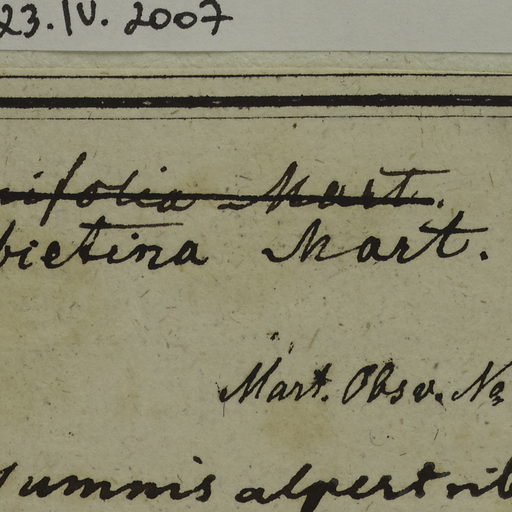 23.IV.2007
ifolia Mart.
bietina Mart.
Mart. Obsv. No
summis alpestrib